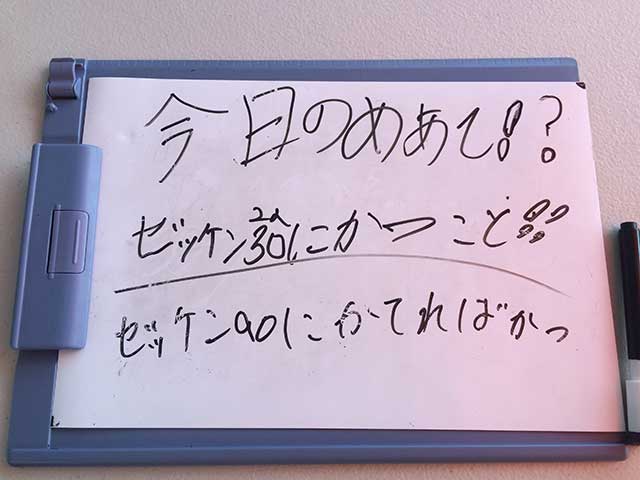 今日のめあて!?
ゼッケン30にかつこと!!
ゼッケン90にかてればかつ